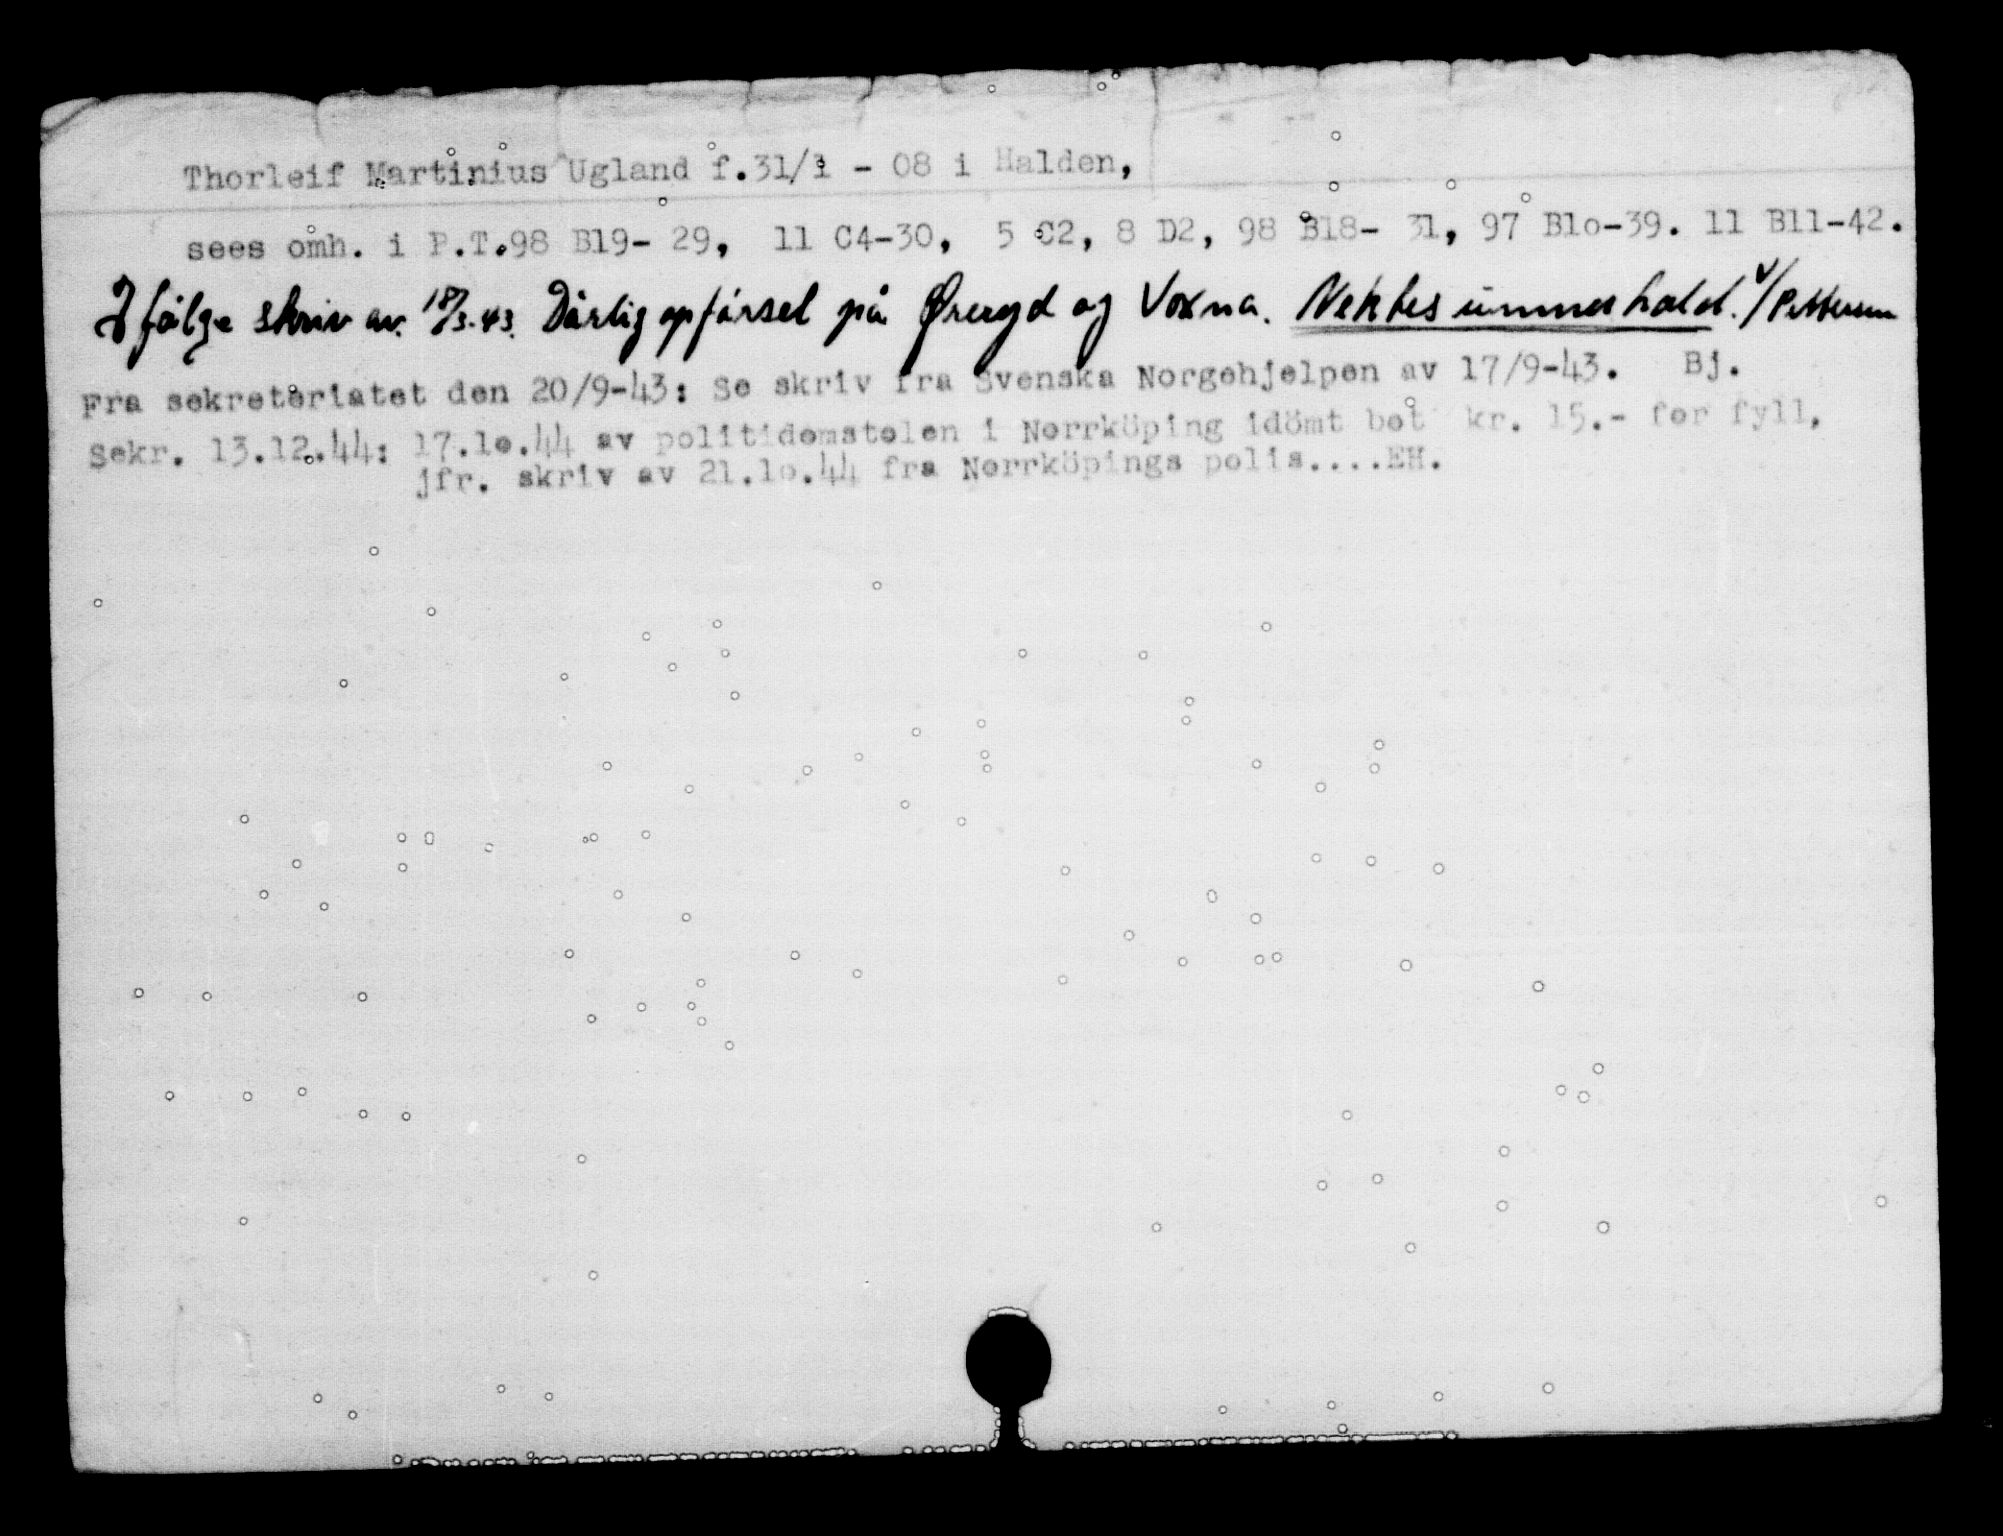 Thorleif Martinius Ugland f.31/1 - 08 i Halden,
sees omh. i P.T.98 B19- 29, 11 C4-30, 5 C2, 8 D2, 98 B18- 31, 97 B1o-39. 11 B11-42.
I følge skriv av 18/3-43. Dårlig opførsel på Øreryd og Voxna. Nektes unnerhold. /Pettersen
Fra sekreteriatet den 20/9-43: Se skriv fra Svenska Norgehjelpen av 17/9-43. Bj.
Sekr. 13.12.44: 17.1o.44 av politidomstolen i Norrköping idömt bot kr. 15.- for fyll,
jfr. skriv av 21.1o.44 fra Norrköpings polis....EH.